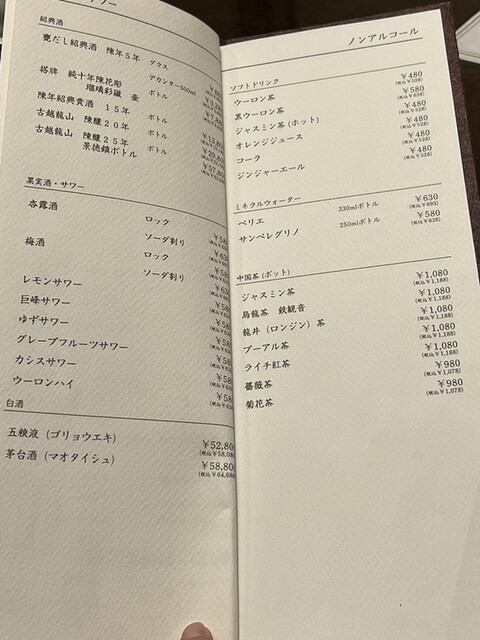 サワー
紹興酒
甕だし紹興酒 陳年5年 グラス
デカンター500ml
塔牌 純十年陳花彫 ボトル
瑠璃彩磁 壷
陳年紹興貴酒 15年 ボトル
古越龍山 陳醸20年 ボトル
古越龍山 陳醸25年 ボトル
景徳鎮ボトル
果実酒・サワー
杏露酒
ロック
ソーダ割り
梅酒
ロック
ソーダ割り
レモンサワー
巨峰サワー
ゆずサワー
グレープフルーツサワー
カシスサワー
ウーロンハイ
白酒
五粮液(ゴリョウエキ) ¥52,80
(税込¥58,08
茅台酒(マオタイシュ) ¥58,80
(税込¥64,68
ノンアルコール
ソフトドリンク
ウーロン茶 ¥480
(税込¥528)
黒ウーロン茶 ¥580
(税込¥638)
ジャスミン茶(ホット) ¥480
(税込¥528)
オレンジジュース ¥480
(税込¥528)
コーラ ¥480
(税込¥528)
ジンジャーエール ¥480
(税込¥528)
ミネラルウォーター
ペリエ 330mlボトル ¥630
(税込¥693)
サンペレグリノ 250mlボトル ¥580
(税込¥638)
中国茶(ポット)
ジャスミン茶 ¥1,080
(税込¥1,188)
烏龍茶 鉄観音 ¥1,080
(税込¥1,188)
龍井(ロンジン)茶 ¥1,080
(税込¥1,188)
プーアル茶 ¥1,080
(税込¥1,188)
ライチ紅茶 ¥1,080
(税込¥1,188)
薔薇茶 ¥980
(税込¥1,078)
菊花茶 ¥980
(税込¥1,078)